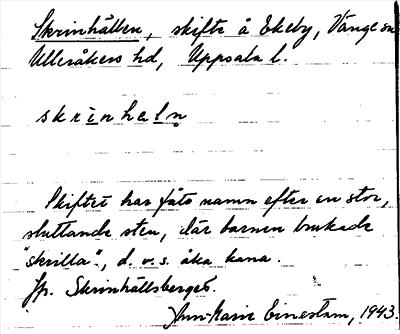 Skrinhällen, skifte å Ekeby, Vänge sn
Ulleråkers hd, Uppsala l.
skrinhaln
Skiftet har fått namn efter en stor,
sluttande sten, där barnen brukade
"skrilla", d.v.s. åka kana.
Jfr. Skrinhällsberget.
Ann-Marie Einestam, 1943.